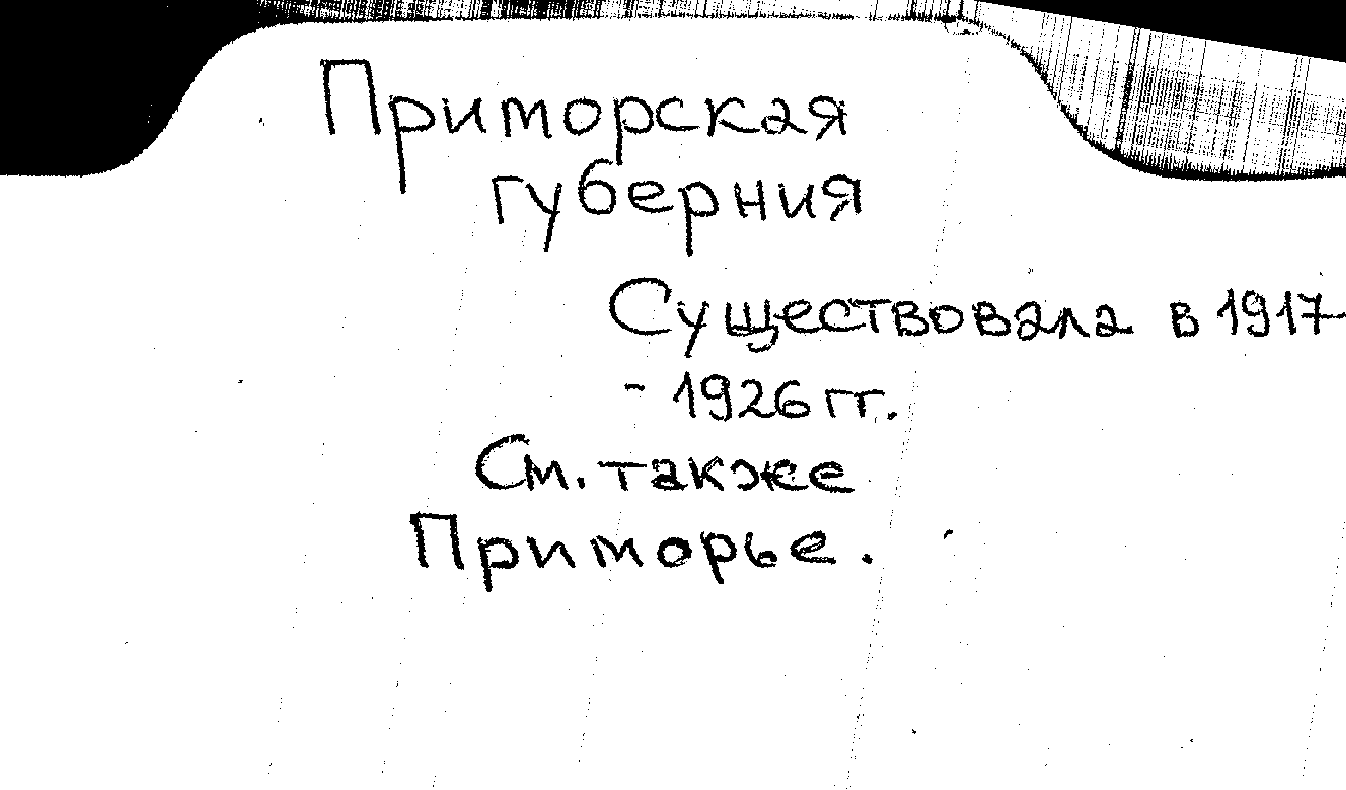 Приморская
губерния
Существовала в 1917-
- 1926 гг.
См. также
Приморье.